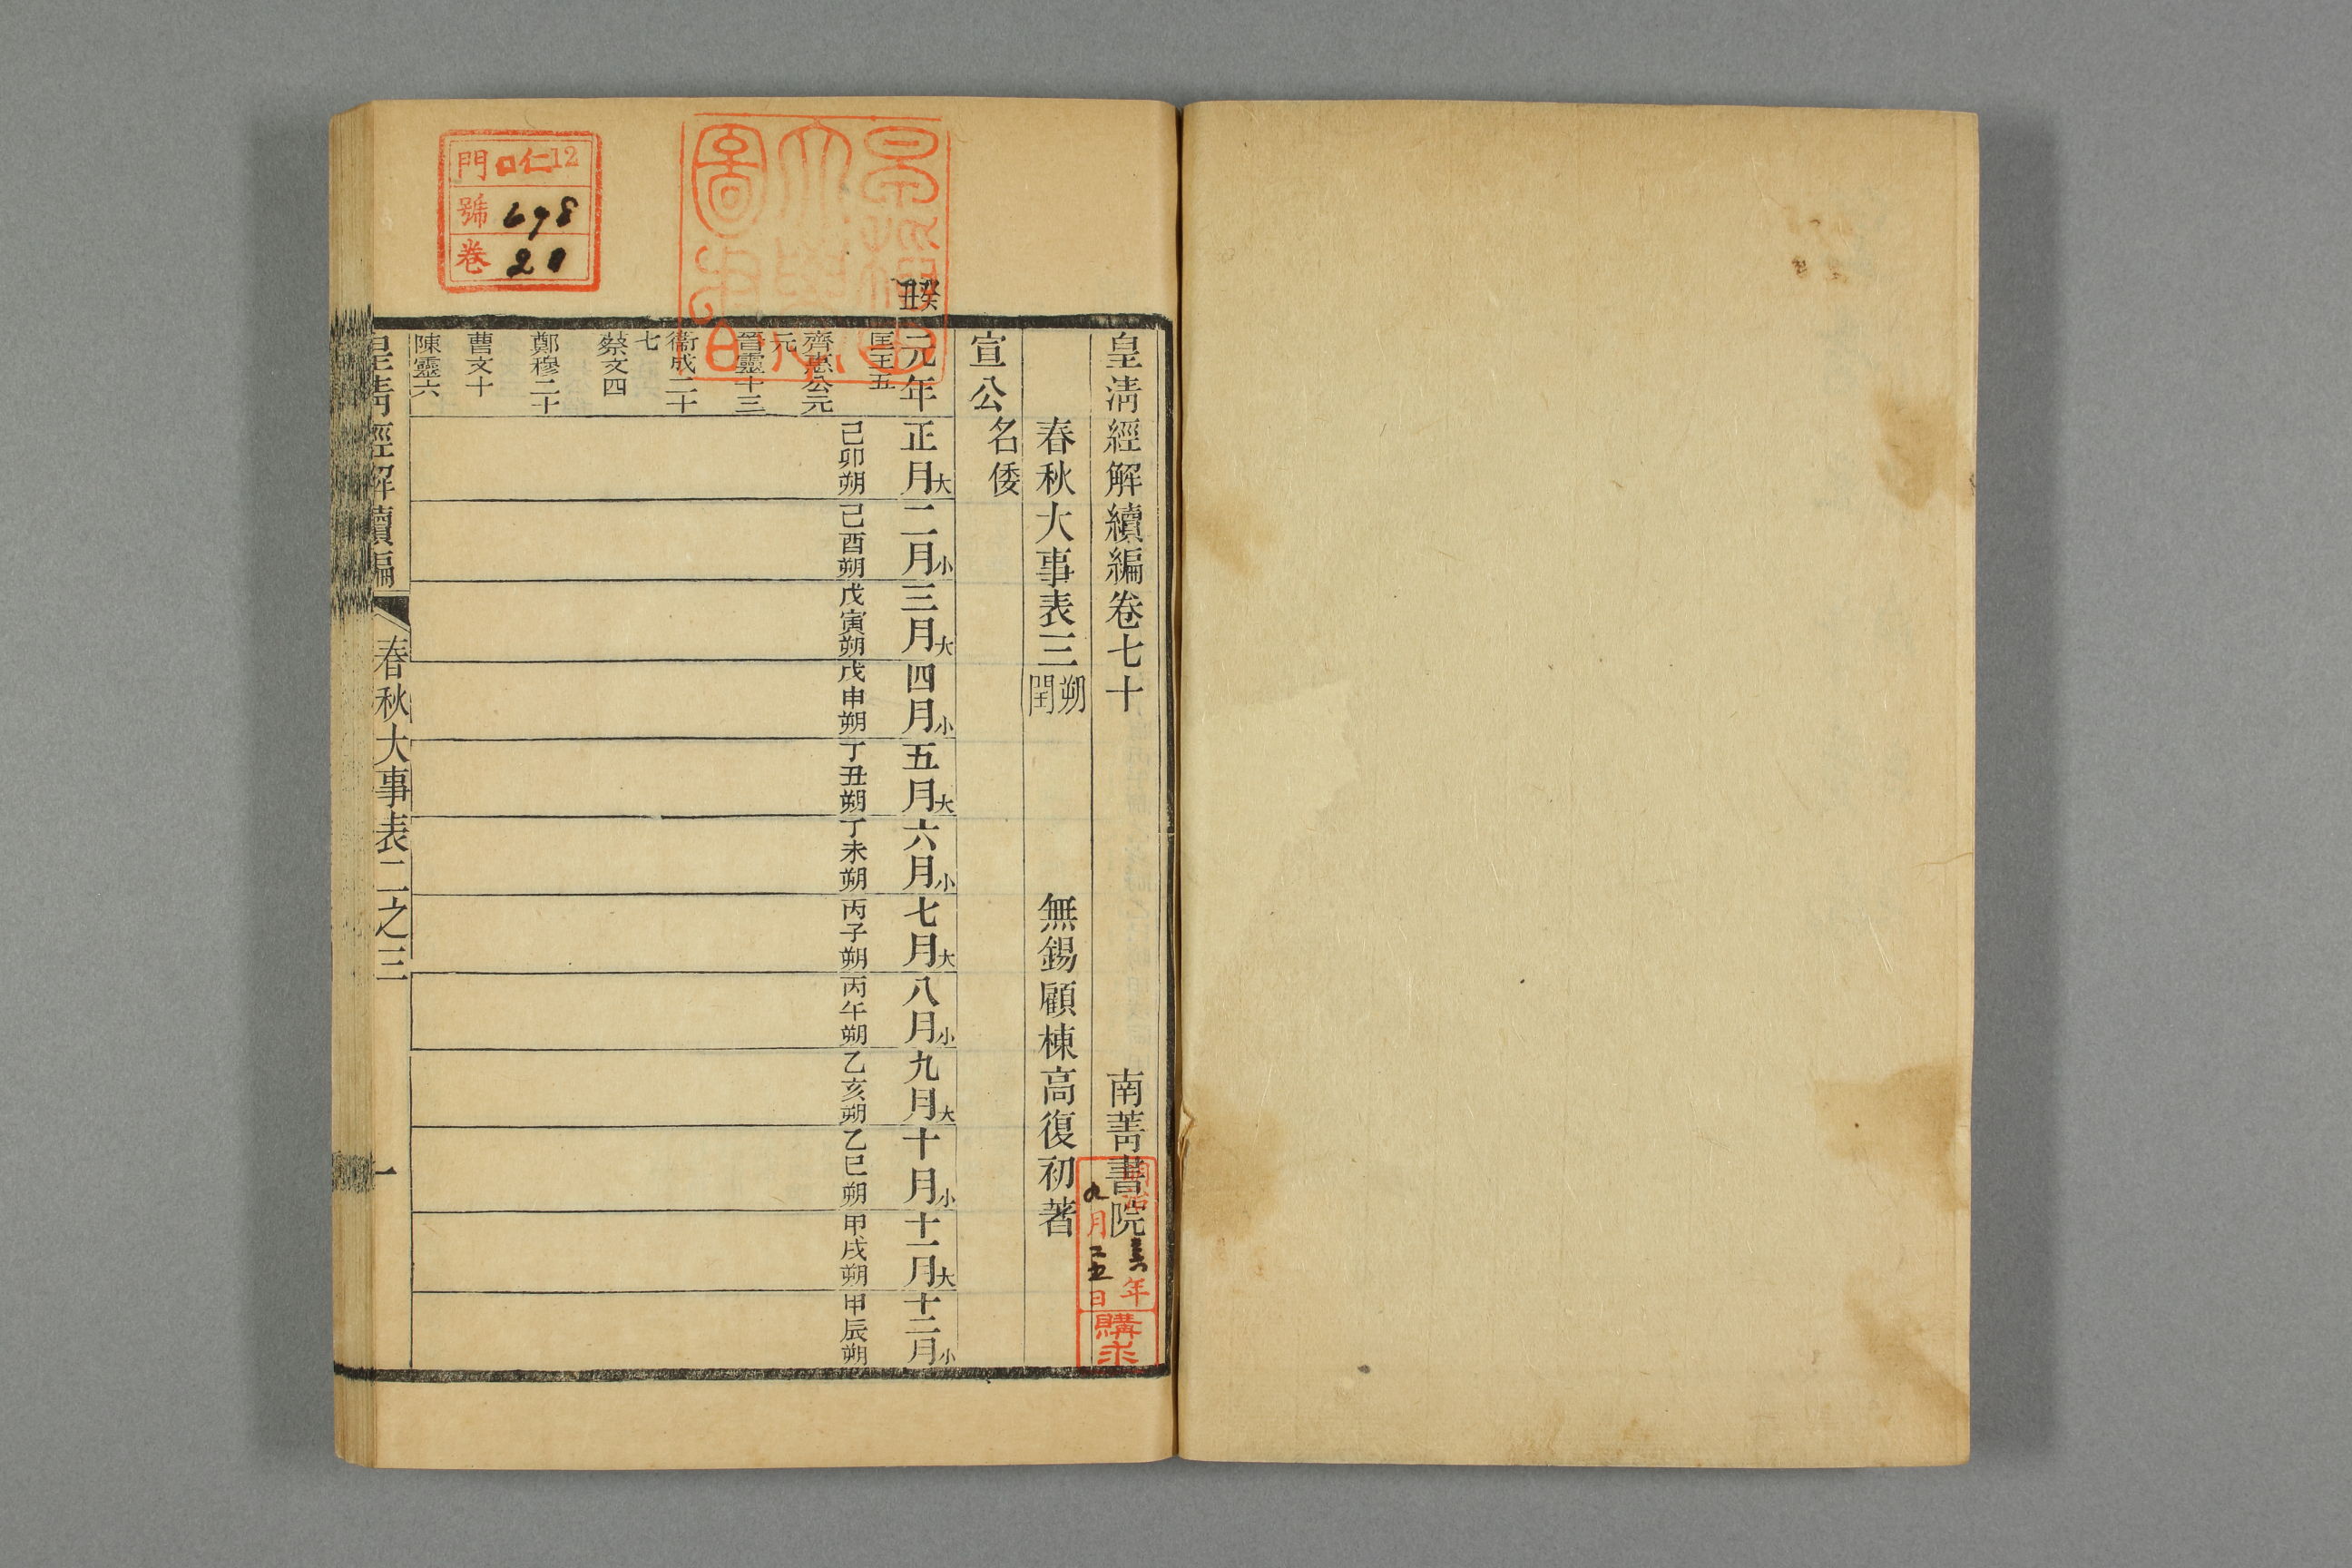 皇清經解續編卷七十　南菁書院
春秋大事表三朔閏　無錫顧棟高復初著
宣公名倭
癸丑
元年
正月大
二月小
三月大
四月小
五月大
六月小
七月大
八月小
九月大
十月小
十一月大
十二月小
匡王五
己卯朔
己酉朔
戊寅朔
戊申朔
丁丑朔
丁未朔
丙子朔
丙午朔
乙亥朔
乙巳朔
甲戌朔
甲辰朔
齊惠公元
元
晉靈十三
衞成二十
七
蔡文四
鄭穆二十
曹文十
陳靈六
皇清經解續編　春秋大事表二之三　一
門 口仁12
號 698
卷 20
明治
年
九月二五日
購求